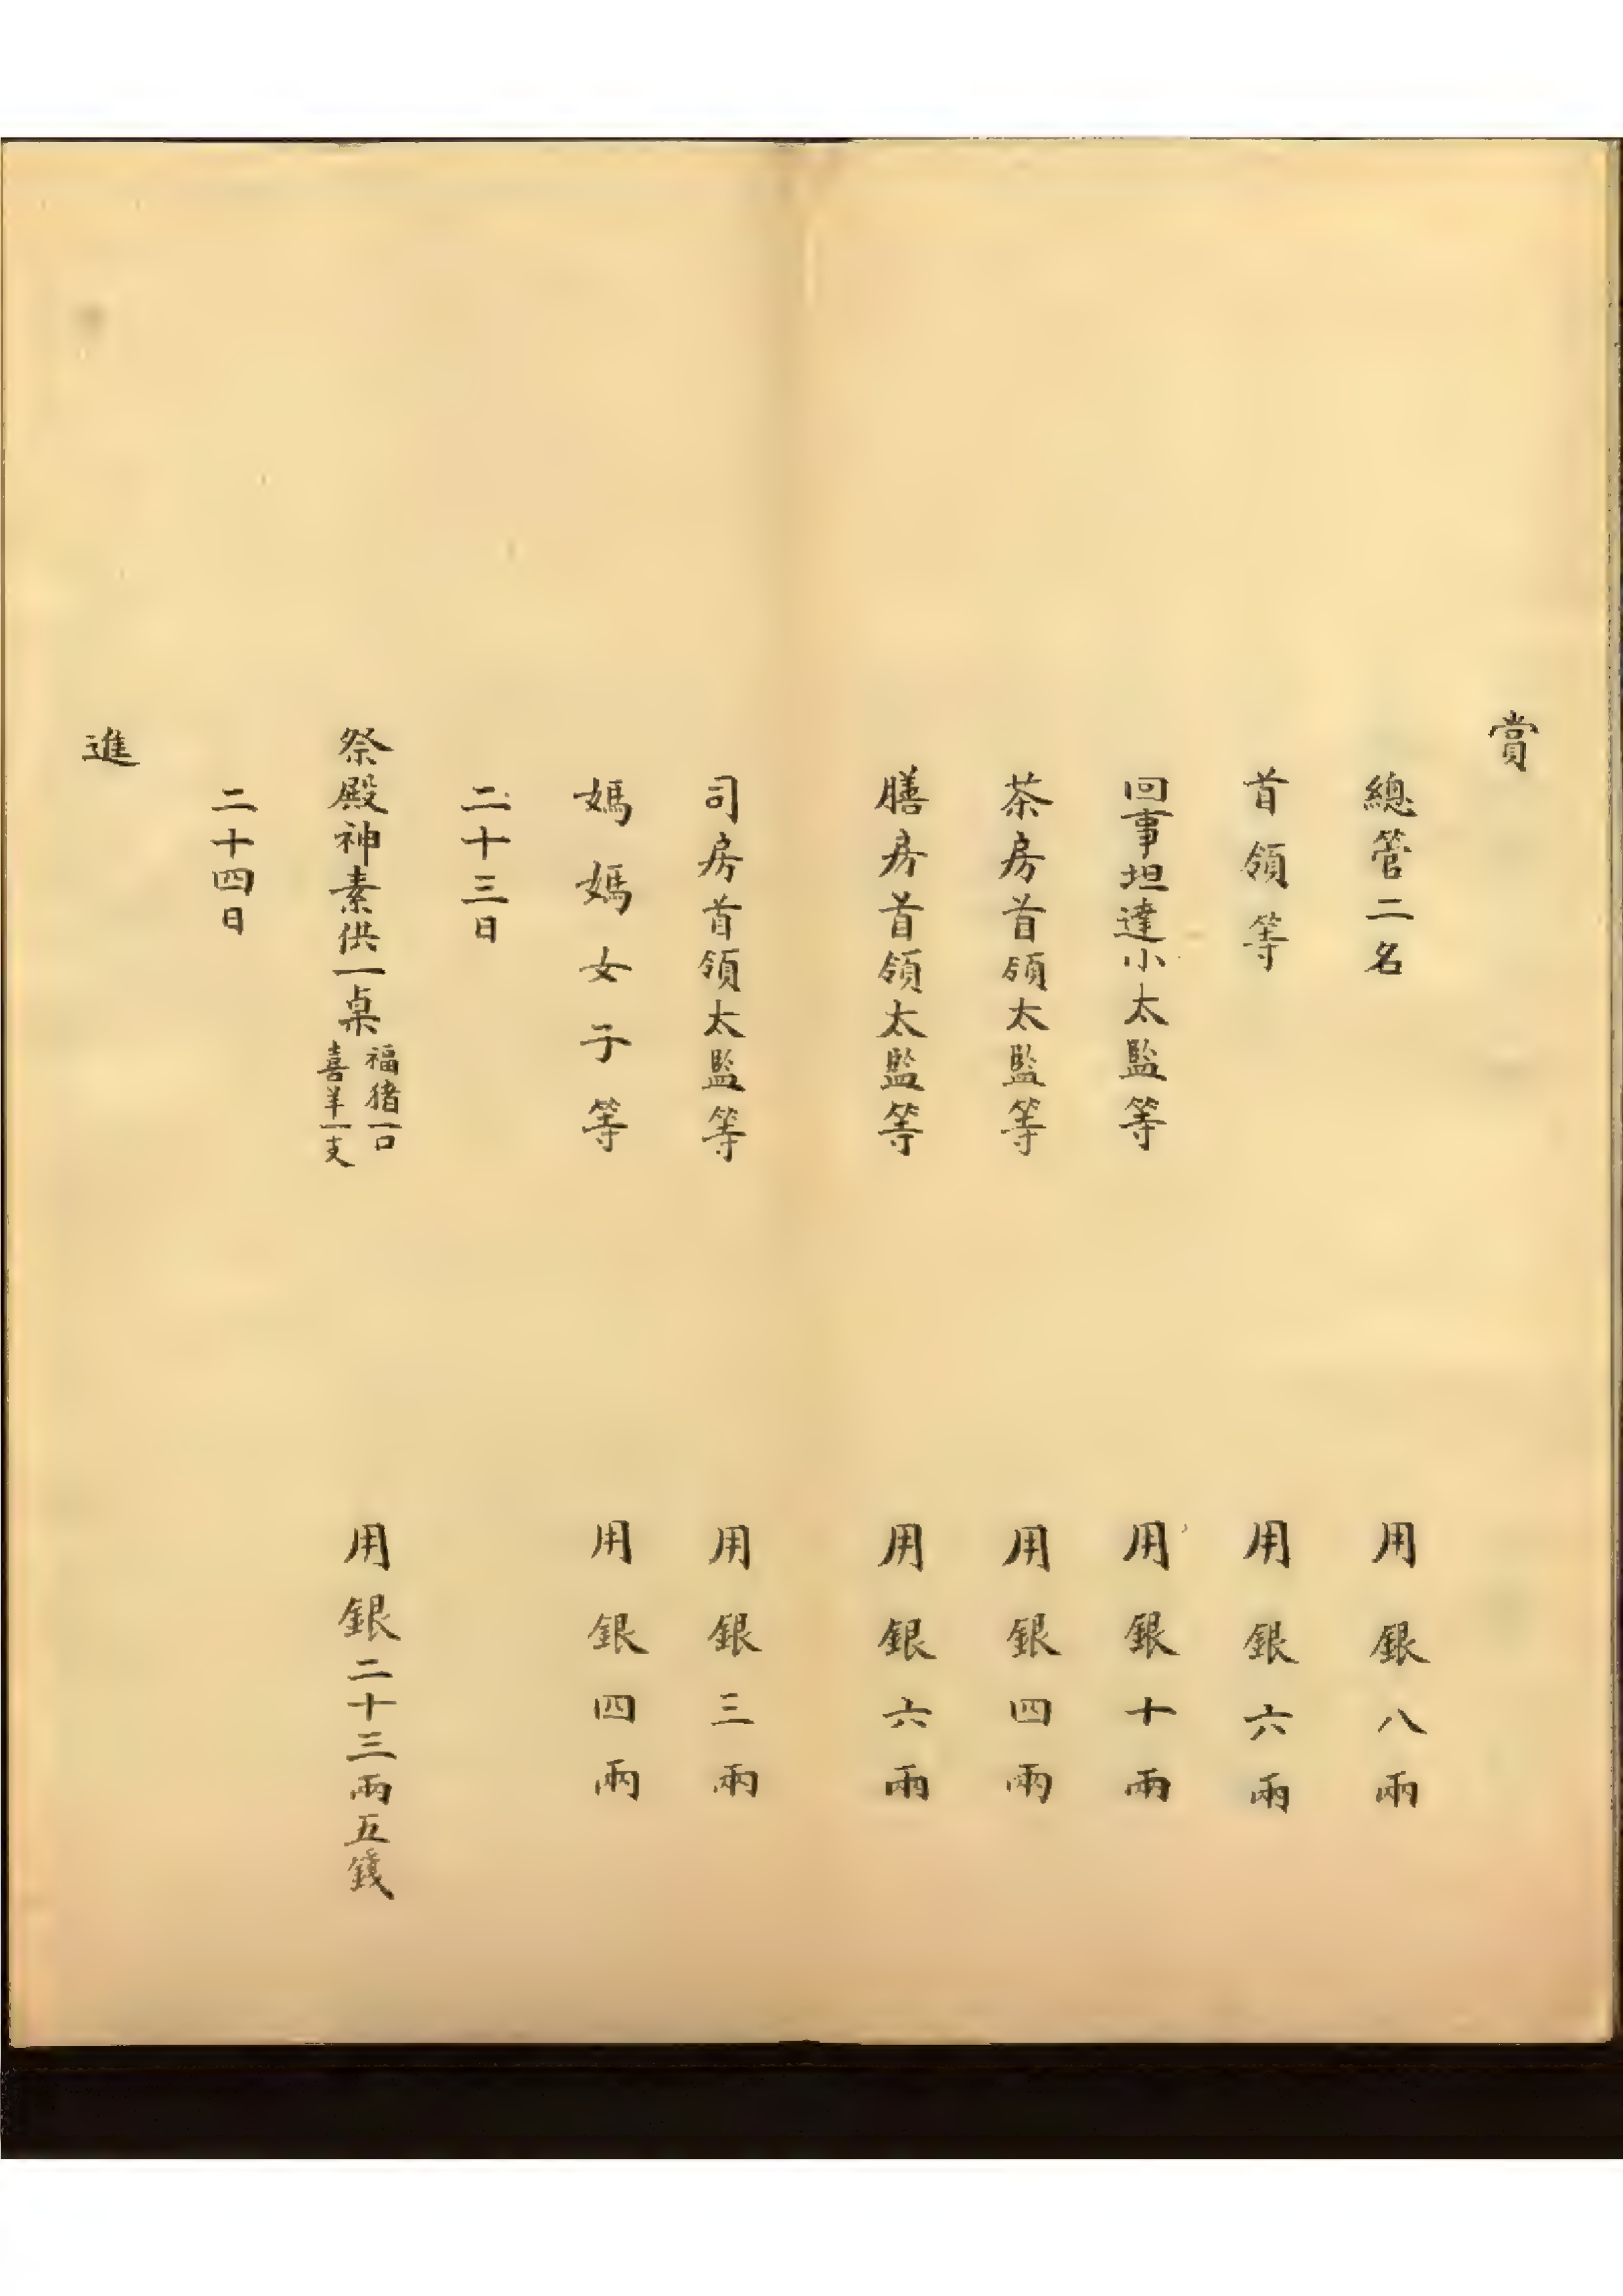 賞
總管二名 用銀八兩
首領等 用銀六兩
回事坦達小太監等 用銀十兩
茶房首領太監等 用銀四兩
膳房首領太監等 用銀六兩
司房首領太監等 用銀三兩
媽媽女子等 用銀四兩
二十三日
祭殿神素供一桌 福猪一口 喜羊一支 用銀二十三兩五錢
二十四日
進